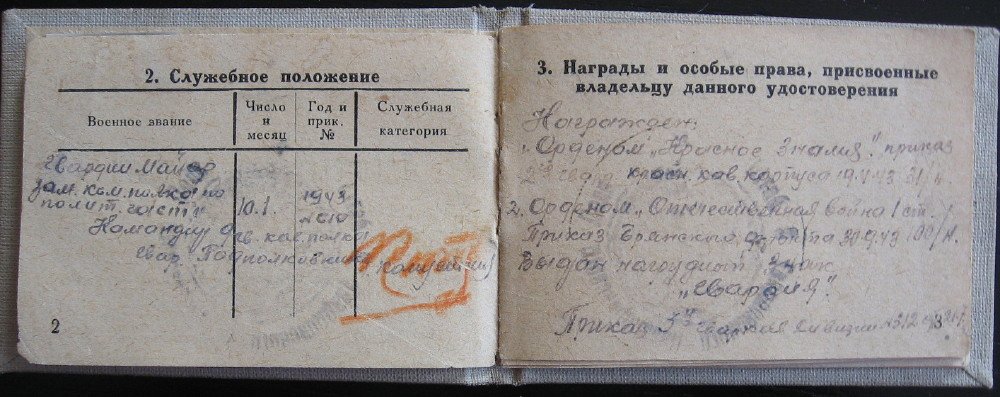 2. Служебное положение
Военное звание
Число и месяц
Год и прик. №
Служебная категория
Гвардии майор
зам. ком. полка по
полит. части
10.1.
1943
Командир
гв. кав. полка
гвар. Подполковник
2
3. Награды и особые права, присвоенные
владельцу данного удостоверения
Награжден:
1. Орденом „Красное Знамя". приказ
2го гвард. кав. корпуса 19.V.43
2. Орденом „Отечественная война 1 ст.
Приказ Брянского фронта 30.9.43
Выдан нагрудный знак
„Гвардия".
Приказ 3й гвардив. дивизии
3